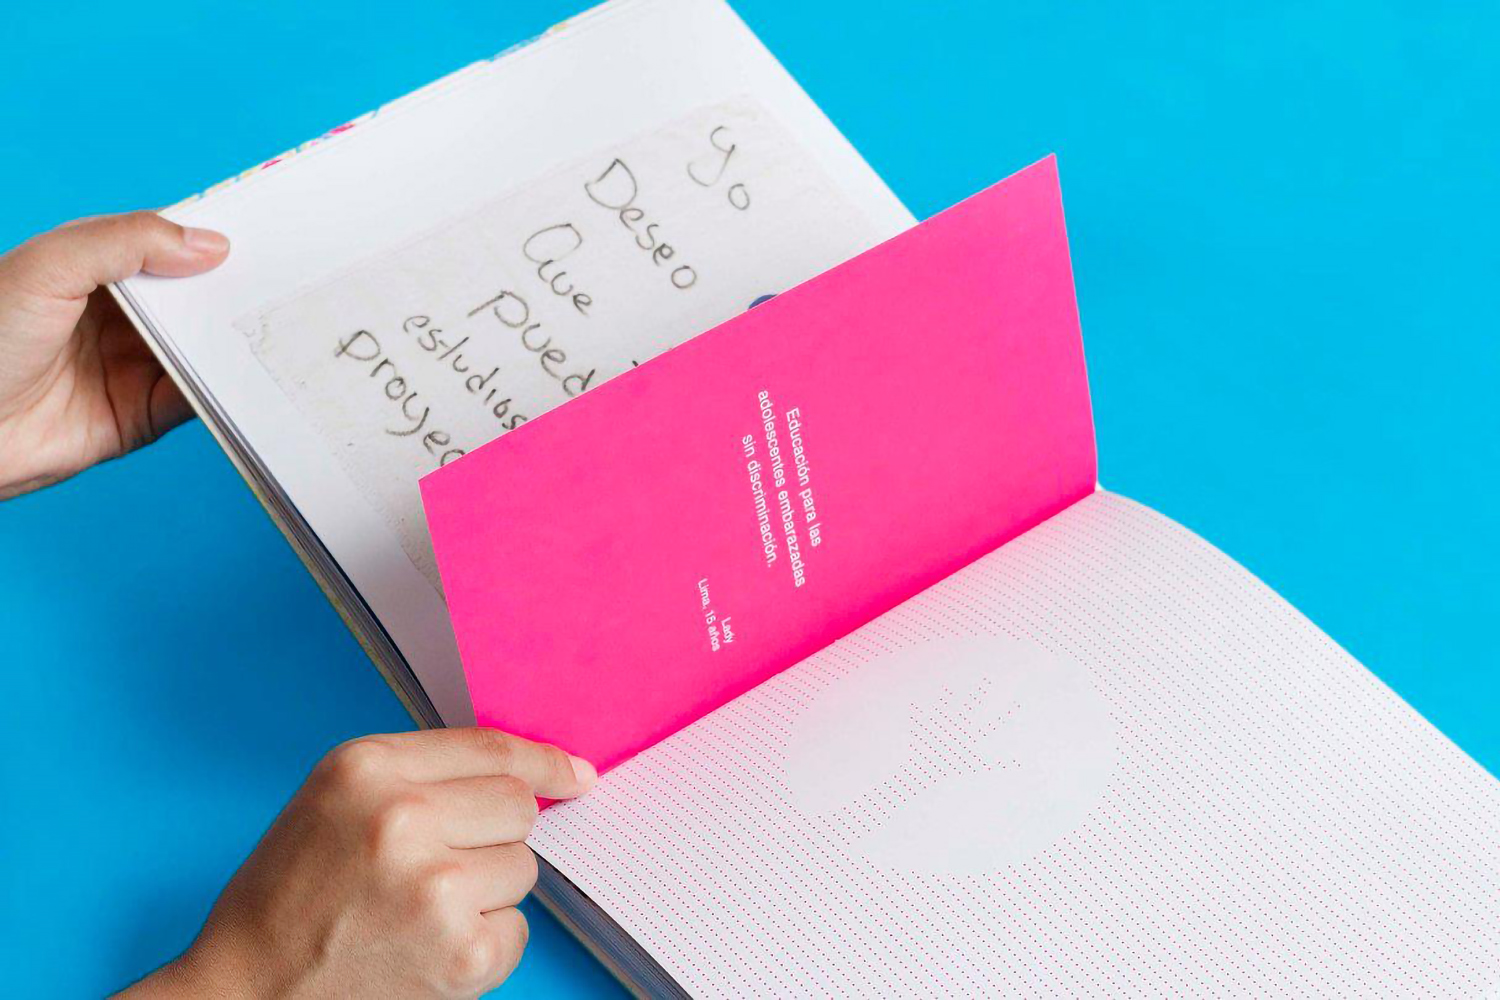 Yo
Deseo
Que
estudios
Educación para las
adolescentes embarazadas
sin discriminación.
Lady
Lima, 15 años